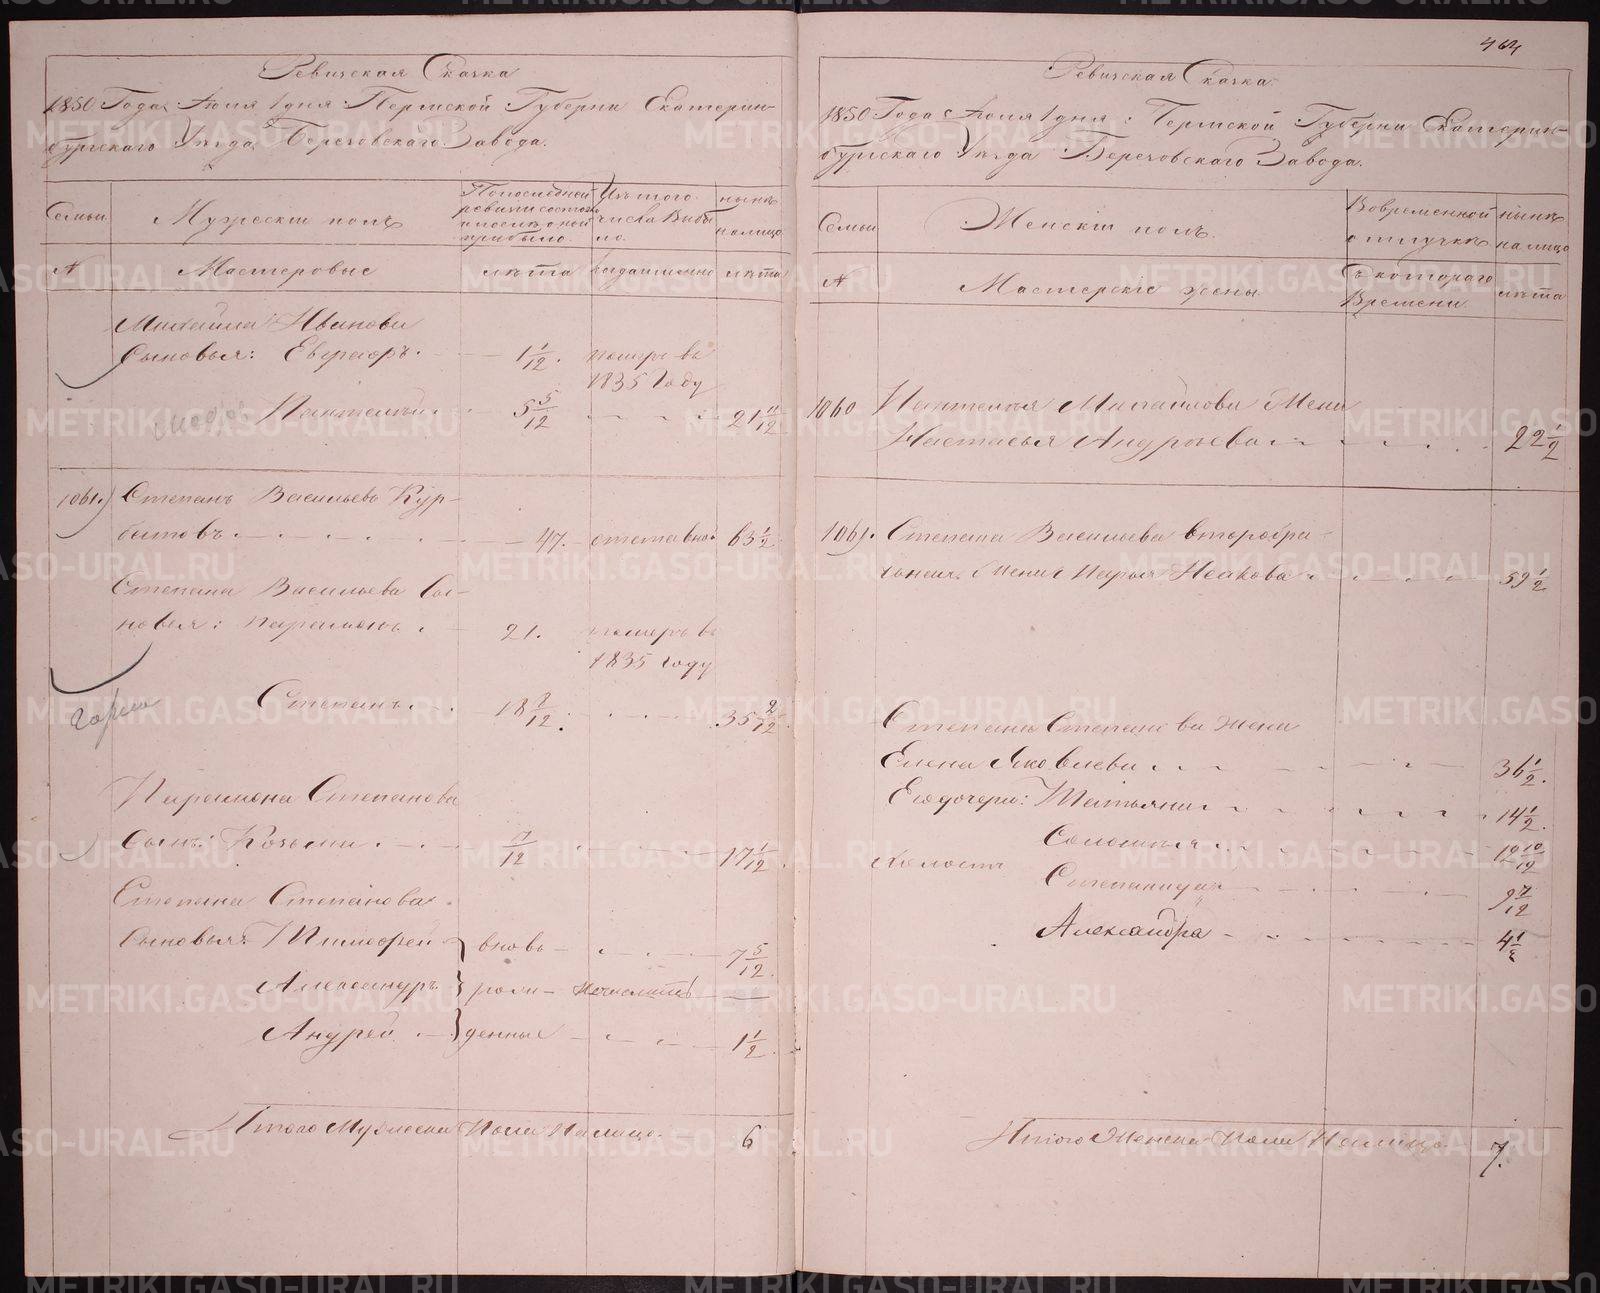 464
Ревизская Сказка
1850 Года Июля 1 дня Пермской Губерни Екатерин-
бургскаго Уѣзда Березовскаго Завода.
Семьи
Мужескiй полъ
По последней
ревизи состоя
и после оной
прибыло
Изъ того
числа выбы
ло.
нынѣ
налицо
№
Мастеровые
лѣта
когда именно
лѣта
Михайла Иванова
сыновья: Евграфъ. 1 1/12. помре въ
1835 Году
Пантелѣй 5 5/12 21 11/12
1061. Степанъ Васильевъ Кур-
батовъ 47. отставной 63 1/2
Степана Васильева сы-
новья: Парамонъ. 21. помре въ
1835 году
Степанъ 18 8/12. 35 2/12.
Парамона Степанова
сынъ: Козьма 7/12 17 1/12.
Степана Степанова
сыновья: Тимофей вновь 7 5/12.
Александръ рож-
Андрей денные 1 1/2.
Итого Мужеска Пола Налицо. 6
Ревизская Сказка
1850 Года Июля 1 дня: Пермской Губерни Екатерин-
бургскаго Уѣзда Березовскаго Завода.
Семьи
Женскiй полъ.
Во временной
отлучкѣ
нынѣ
налицо
№
Мастерскiе жены
Съ котораго
времени
лѣта
1060 Пантелѣя Михайлова Жена
Настасья Андреева 22 1/2
1061. Степана Васильева второбра-
чная жена Марья Исакова 59 1/2
Степана Степанова жена
Елена Яковлева 36 1/2.
Его дочери: Татьяна 14 1/2.
Соломѣя 10 10/12
Степанида 9 7/12
Александра 4 1/2
Итого Женска Пола Налицо. 7.
METRIKI.GASO-URAL.RU